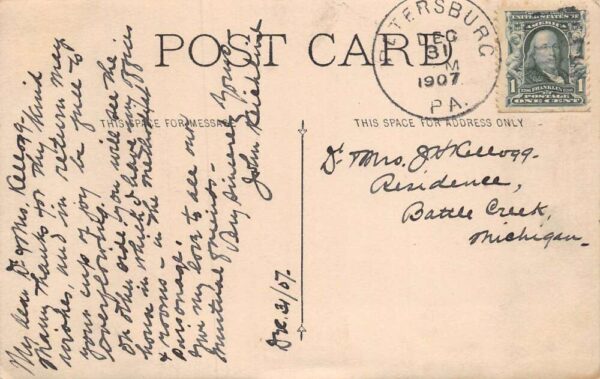 POST CARD
THIS SPACE FOR MESSAGE
THIS SPACE FOR ADDRESS ONLY
TERSBURG
DEC
31
M
1907
PA.
UNITED STATES OF
AMERICA
1 FRANKLIN 1
POSTAGE
ONE CENT
My dear Dr & Mrs. Kellogg-
Many thanks for thy kind
wishes, and in return may
your cup of joy be full to
overflowing.
On other side you will see the
house in which I have my office
& rooms - in the Methodist
parsonage.
Give my love to all our
mutual friends-
Very sincerely Yours
John
Dec. 31/07.
Dr Mrs. JH Kellogg-
Residence,
Battle Creek,
Michigan-